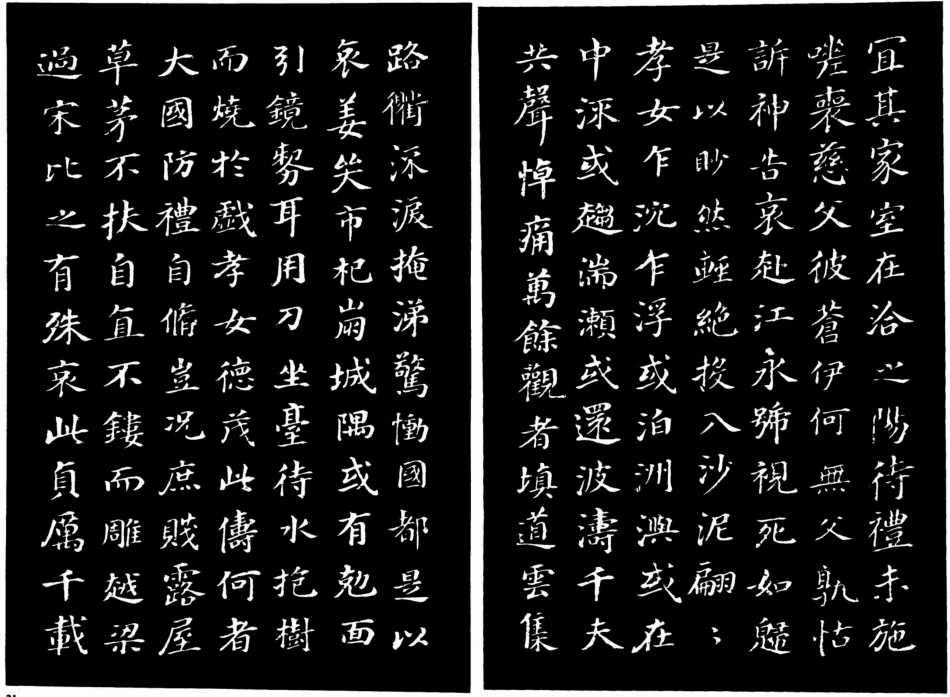 宜其家室在洽之陽待禮未施
嗟喪慈父彼蒼伊何無父孰怙
訴神告哀赴江永號視死如歸
是以眇然輕絶投入沙泥翩〻
孝女乍沉乍浮或泊洲嶼或在
中流或趨湍瀨或還波濤千夫
共聲悼痛萬餘觀者填道雲集
路衢流淚掩涕驚慟國都是以
哀姜哭市杞崩城隅或有尅面
引鏡剺耳用刀坐臺待水抱樹
而燒於戲孝女德茂此儔何者
大國防禮自脩豈況庶賤露屋
草茅不扶自直不鏤而雕越梁
過宋比之有殊哀此貞厲千載